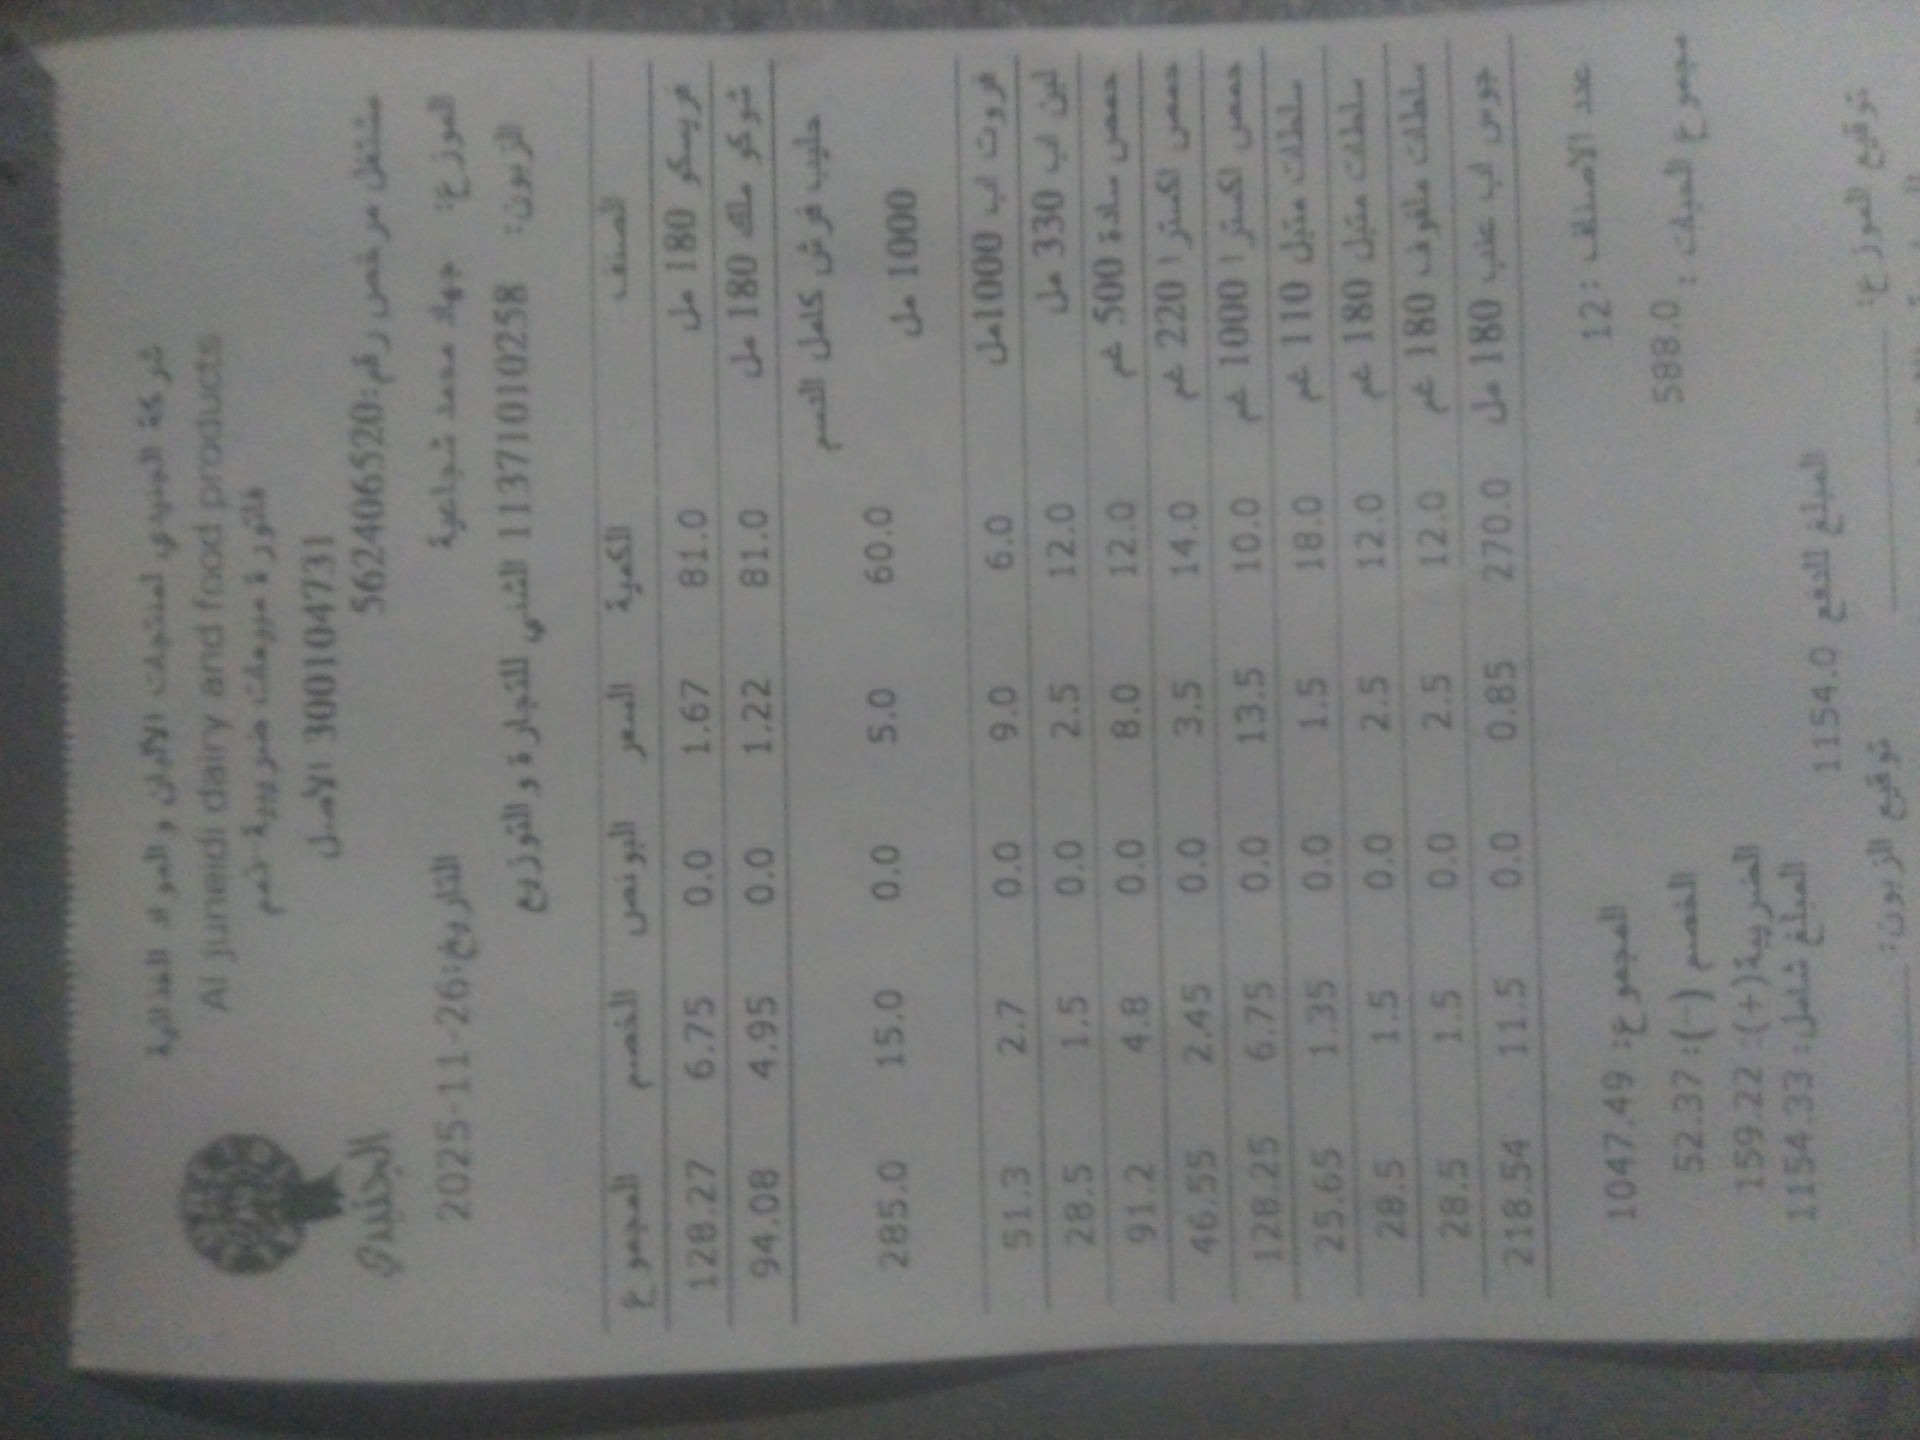 شركة الجنيدي لمنتجات الألبان و المواد الغذائية
Al juneidi dairy and food products
فاتورة مبيعات ضريبية ذمم
3001104731 الاصل
الجنيدي
مشتغل مرخص رقم:562406520
الموزع: جهاد محمد شجاعية
التاريخ:2025-11-26
الزبون: 1137101010258 الشني للتجارة و التوزيع
الصنف الكمية السعر البونص الخصم المجموع
فريسكو 180 مل 81.0 1.67 0.0 6.75 128.27
شوكو ملك 180 مل 81.0 1.22 0.0 4.95 94.08
حليب فرش كامل الدسم
1000 مل 60.0 5.0 0.0 15.0 285.0
فروت اب 1000مل 6.0 9.0 0.0 2.7 51.3
لبن اب 330 مل 12.0 2.5 0.0 1.5 28.5
حمص سادة 500 غم 12.0 8.0 0.0 4.8 91.2
حمص اكسترا 220 غم 14.0 3.5 0.0 2.45 46.55
حمص اكسترا 1000 غم 10.0 13.5 0.0 6.75 128.25
سلطات متبل 110 غم 18.0 1.5 0.0 1.35 25.65
سلطات متبل 180 غم 12.0 2.5 0.0 1.5 28.5
سلطات ملفوف 180 غم 12.0 2.5 0.0 1.5 28.5
جوس اب عنب 180 مل 270.0 0.85 0.0 11.5 218.54
عدد الاصناف :12
المجموع: 1047.49
مجموع الحبات : 588.0
الخصم (-): 52.37
الضريبة(+): 159.22
المبلغ شامل: 1154.33
المبلغ للدفع 1154.0
توقيع الموزع:
توقيع الزبون: